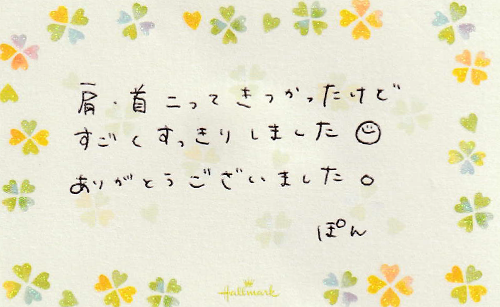 肩・首こってきつかったけど
すごくすっきりしました☺
ありがとうございました。
ぽん
Hallmark